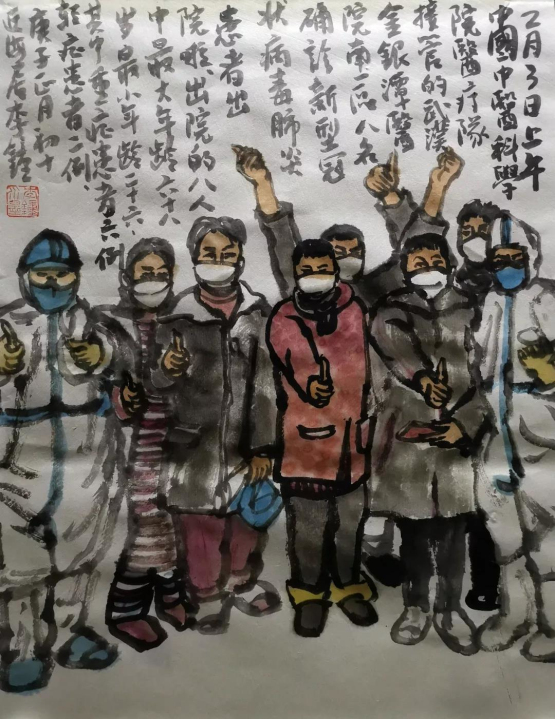 二月3日上午
中國中醫科學
院醫疗隊
接管的武漢
金銀潭醫
院南一区八名
确診新型冠
状病毒肺炎
患者出
院啦出院的八人
中最大年龄六十八
岁最小年龄二十六、
其中重症患者六例
轻症患者二例、
庚子正月初十
居李